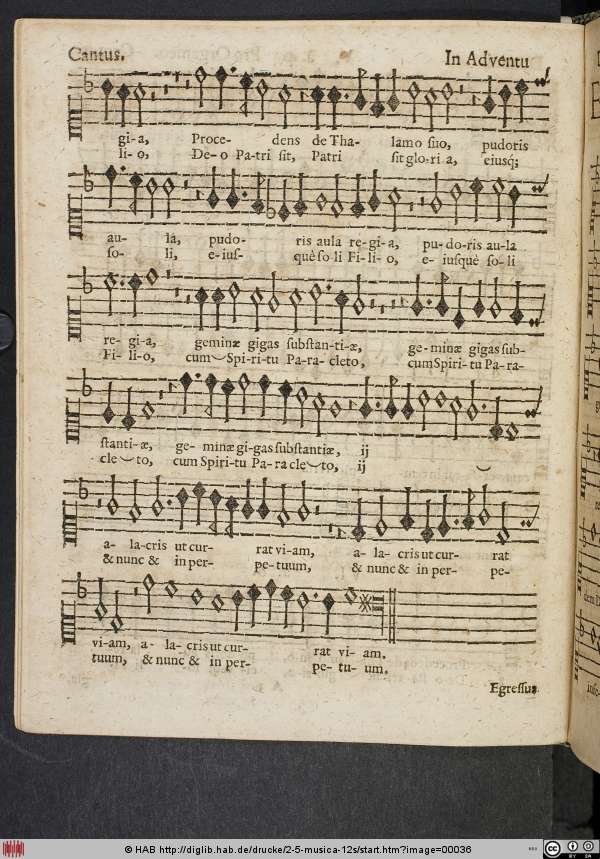 Cantus. In Adventu
gi-a, Proce- dens de Tha- lamo suo, pudoris
li-o, De-o Pa-tri sit, Patri sit glo-ri a, eiusq́;
au- la, pudo- ris aula re-gi-a, pu-do-ris au-la
so- li, e-ius- què so-li Fi-li-o, e-iusquè so-li
re-gi-a, geminæ gigas substan-ti-æ, ge-minæ gigas sub-
Fi-li-o, cum Spi-ri-tu Pa-ra-cleto, cum Spiri-tu Pa-ra-
stanti-æ, ge-minæ gi-gas substantiæ, ij
cle to, cum Spiri-tu Pa-ra cle to, ij
a- la-cris ut cur- rat vi-am, a- la- cris ut cur- rat
& nunc & in per- pe-tuum, & nunc & in per- pe-
vi-am, a- la-cris ut cur- rat vi- am.
tuum, & nunc & in per- pe- tu- um.
Egressus
© HAB http://diglib.hab.de/drucke/2-5-musica-12s/start.htm?image=00036